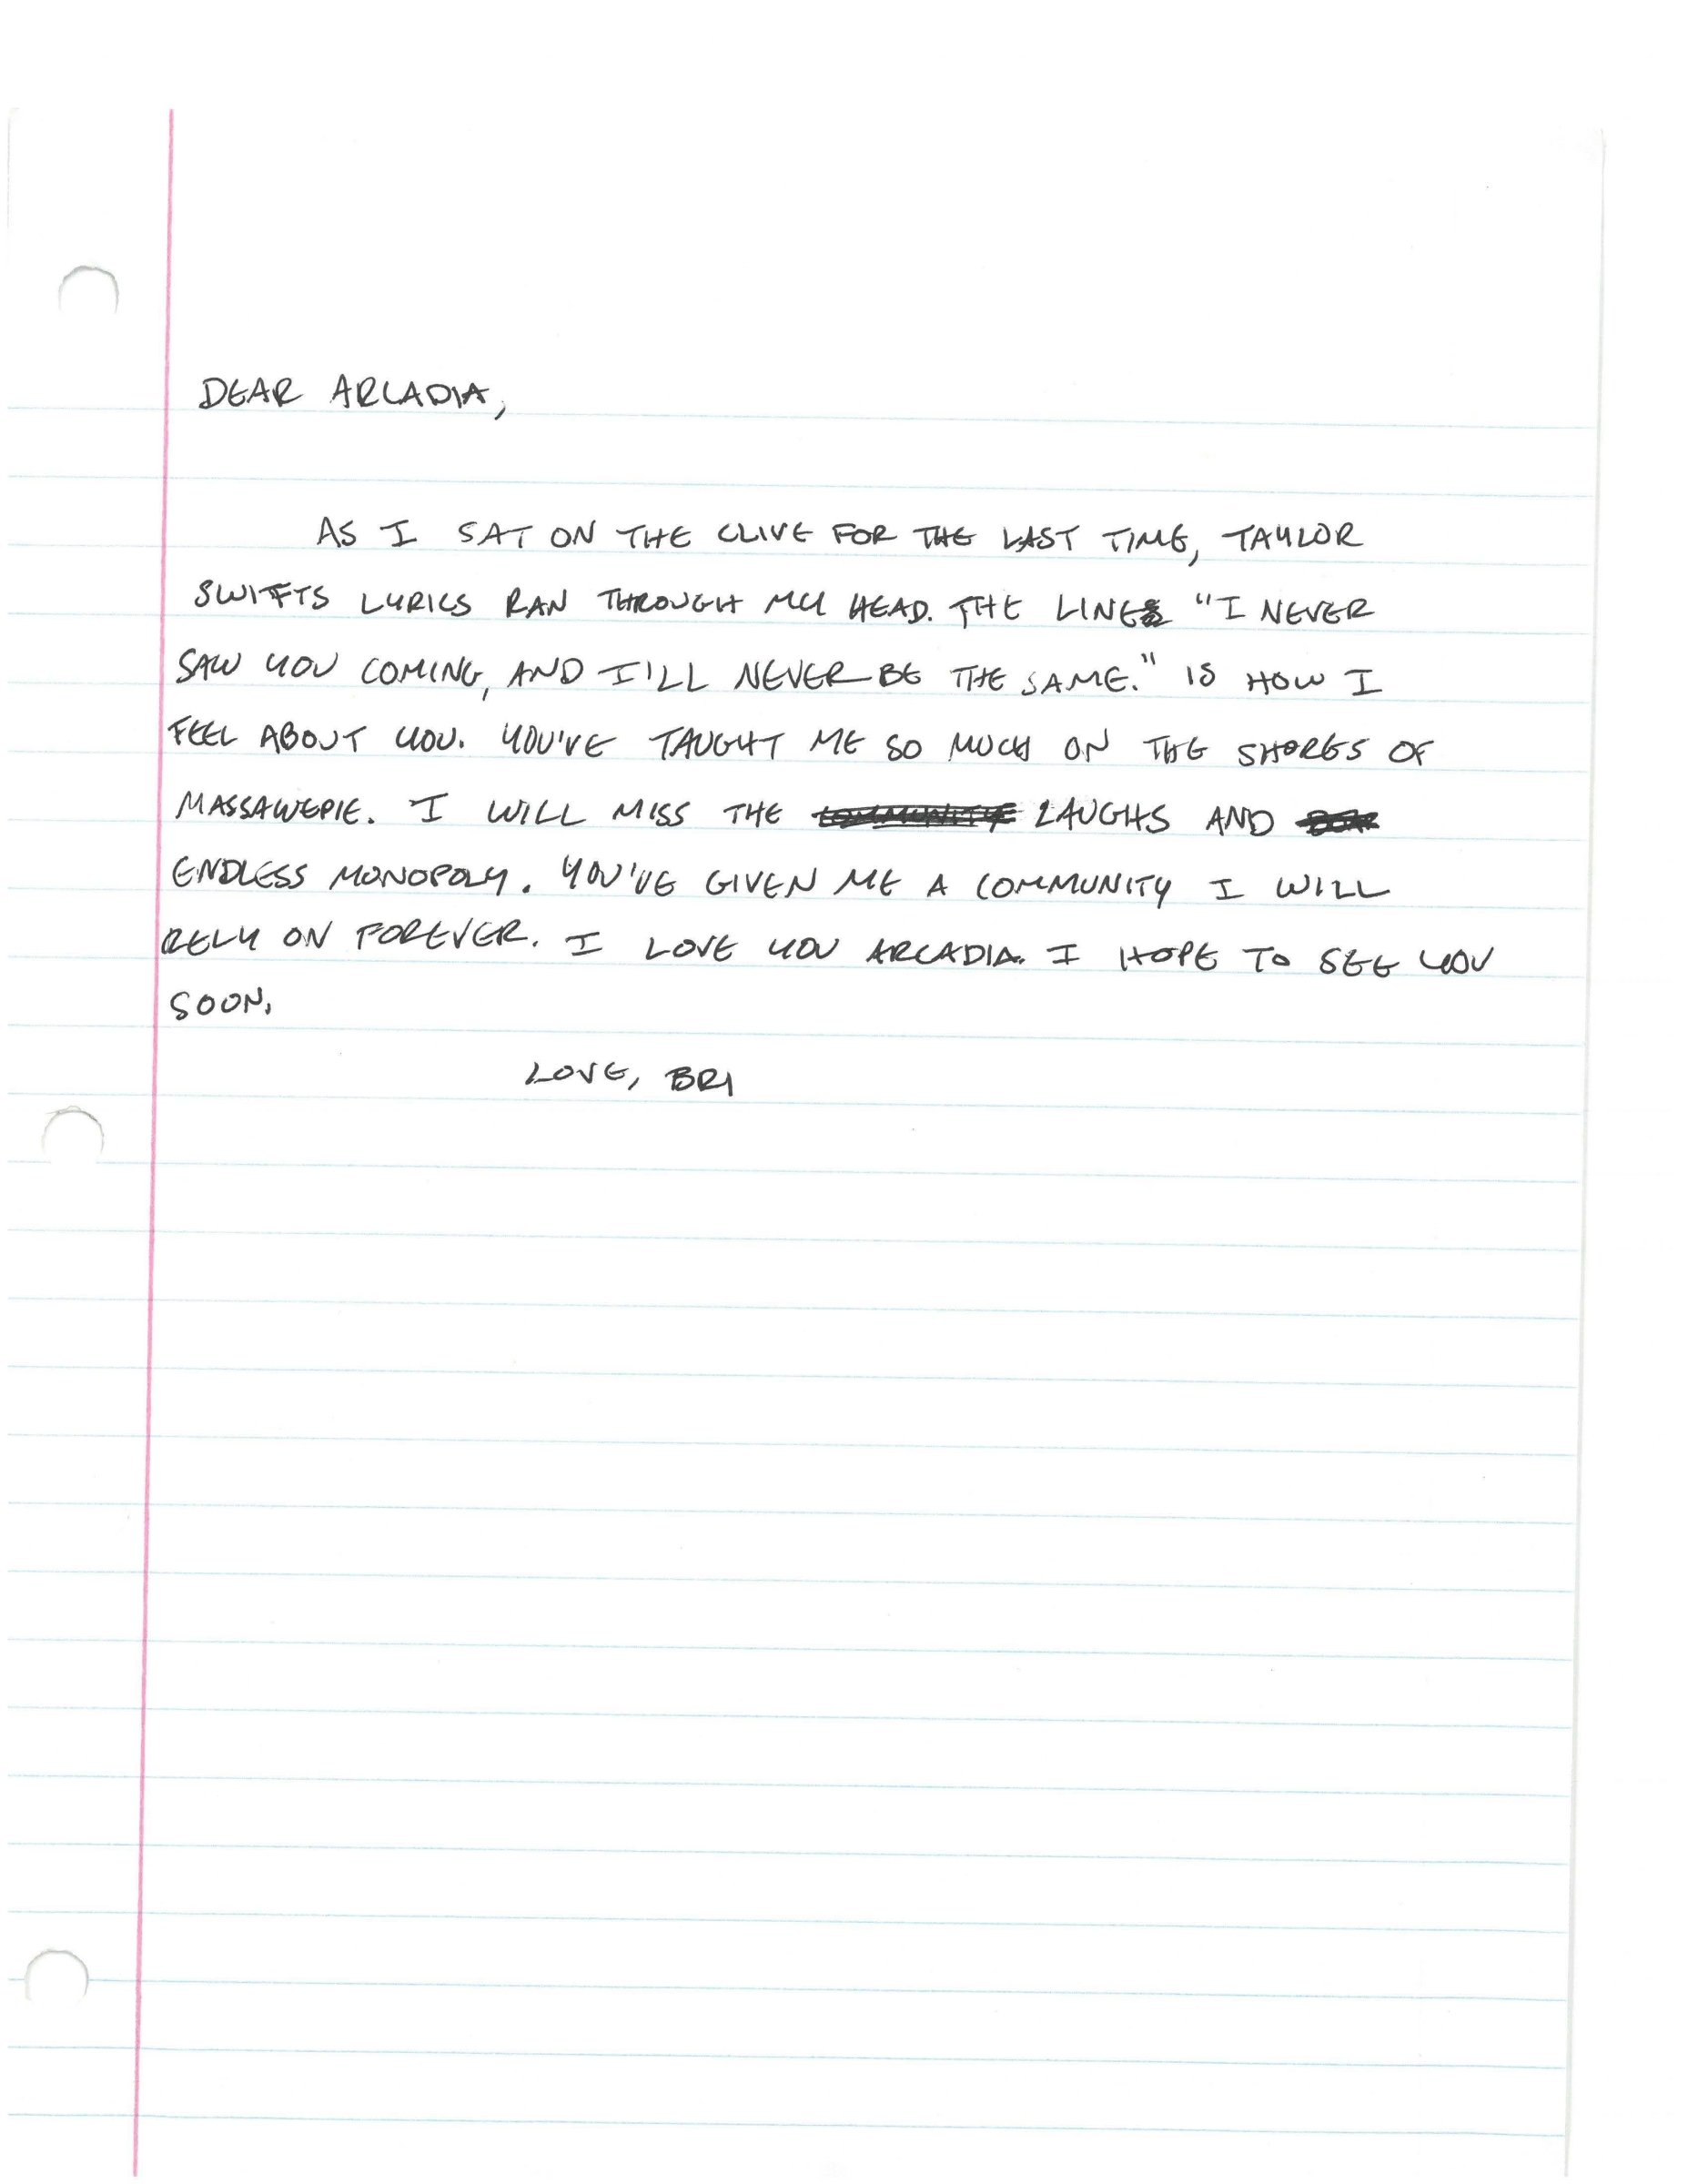 DEAR ARCADIA,
AS I SAT ON THE CLIVE FOR THE LAST TIME, TAYLOR
SWIFTS LYRICS RAN THROUGH MY HEAD. THE LINE "I NEVER
SAW YOU COMING, AND I'LL NEVER BE THE SAME." IS HOW I
FEEL ABOUT YOU. YOU'VE TAUGHT ME SO MUCH ON THE SHORES OF
MASSAWEPIE. I WILL MISS THE LAUGHS AND
ENDLESS MONOPOLY. YOU'VE GIVEN ME A COMMUNITY I WILL
RELY ON FOREVER. I LOVE YOU ARCADIA. I HOPE TO SEE YOU
SOON.
LOVE, BRI